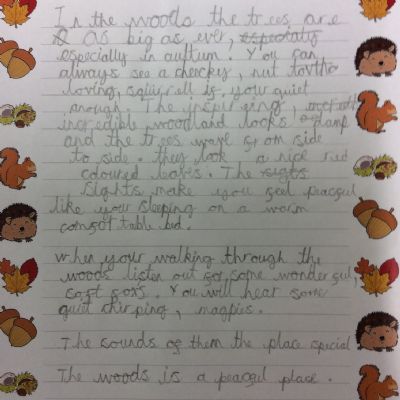 In the woods the trees are
as big as ever, especialy
especially in autum. You can
always see a cheeky, nut
loving, squirrell is your quiet
enough. The inspireing,
incredible woodland looks damp
and the trees wave from side
to side. they look a nice red
coloured leaves. The sights
sights make you feel peacful
like your sleeping on a warm
comfot table bed.
when your walking through the
woods listen out for some wonderful,
soft foxs. You will hear some
quiet chirping, magpies.
The sounds of them the place special
The woods is a peacful place.